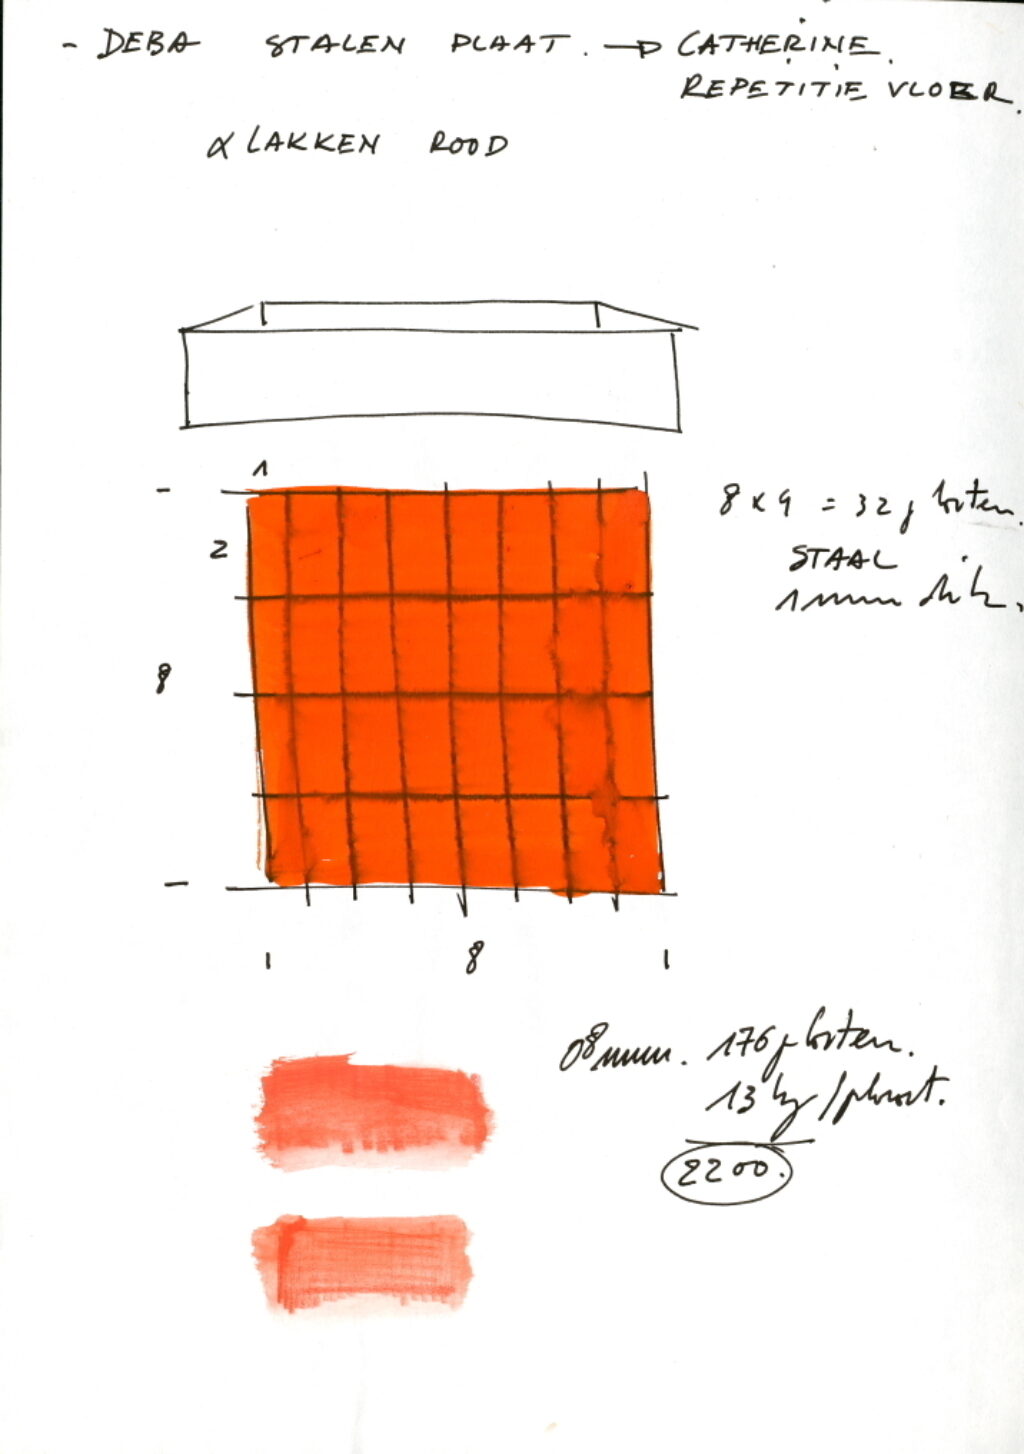 - DEBA STALEN PLAAT. → CATHERINE.
REPETITIE VLOER.
& LAKKEN ROOD
1
-
2
8 x 4 = 32 platen.
STAAL
1 mm dik.
8
-
1 8 1
08 mm. 176 platen.
13 kg/plaat.
2200.